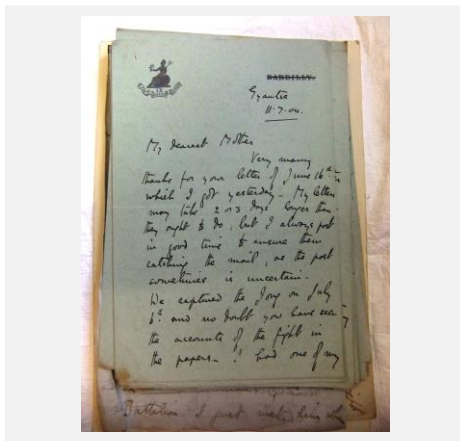 BAREILLY.
Gyantse
11.7.04.
My dearest Mother
Very many
thanks for your letter of June 16th
which I got yesterday. My letters
may take 2 or 3 days longer than
they ought to do, but I always post
in good time to ensure them
catching the mail, as the post
sometimes is uncertain.
We captured the Jong on July
6th and no doubt you have seen
the accounts of the fight in
the papers. I had one of my
Battalion I just